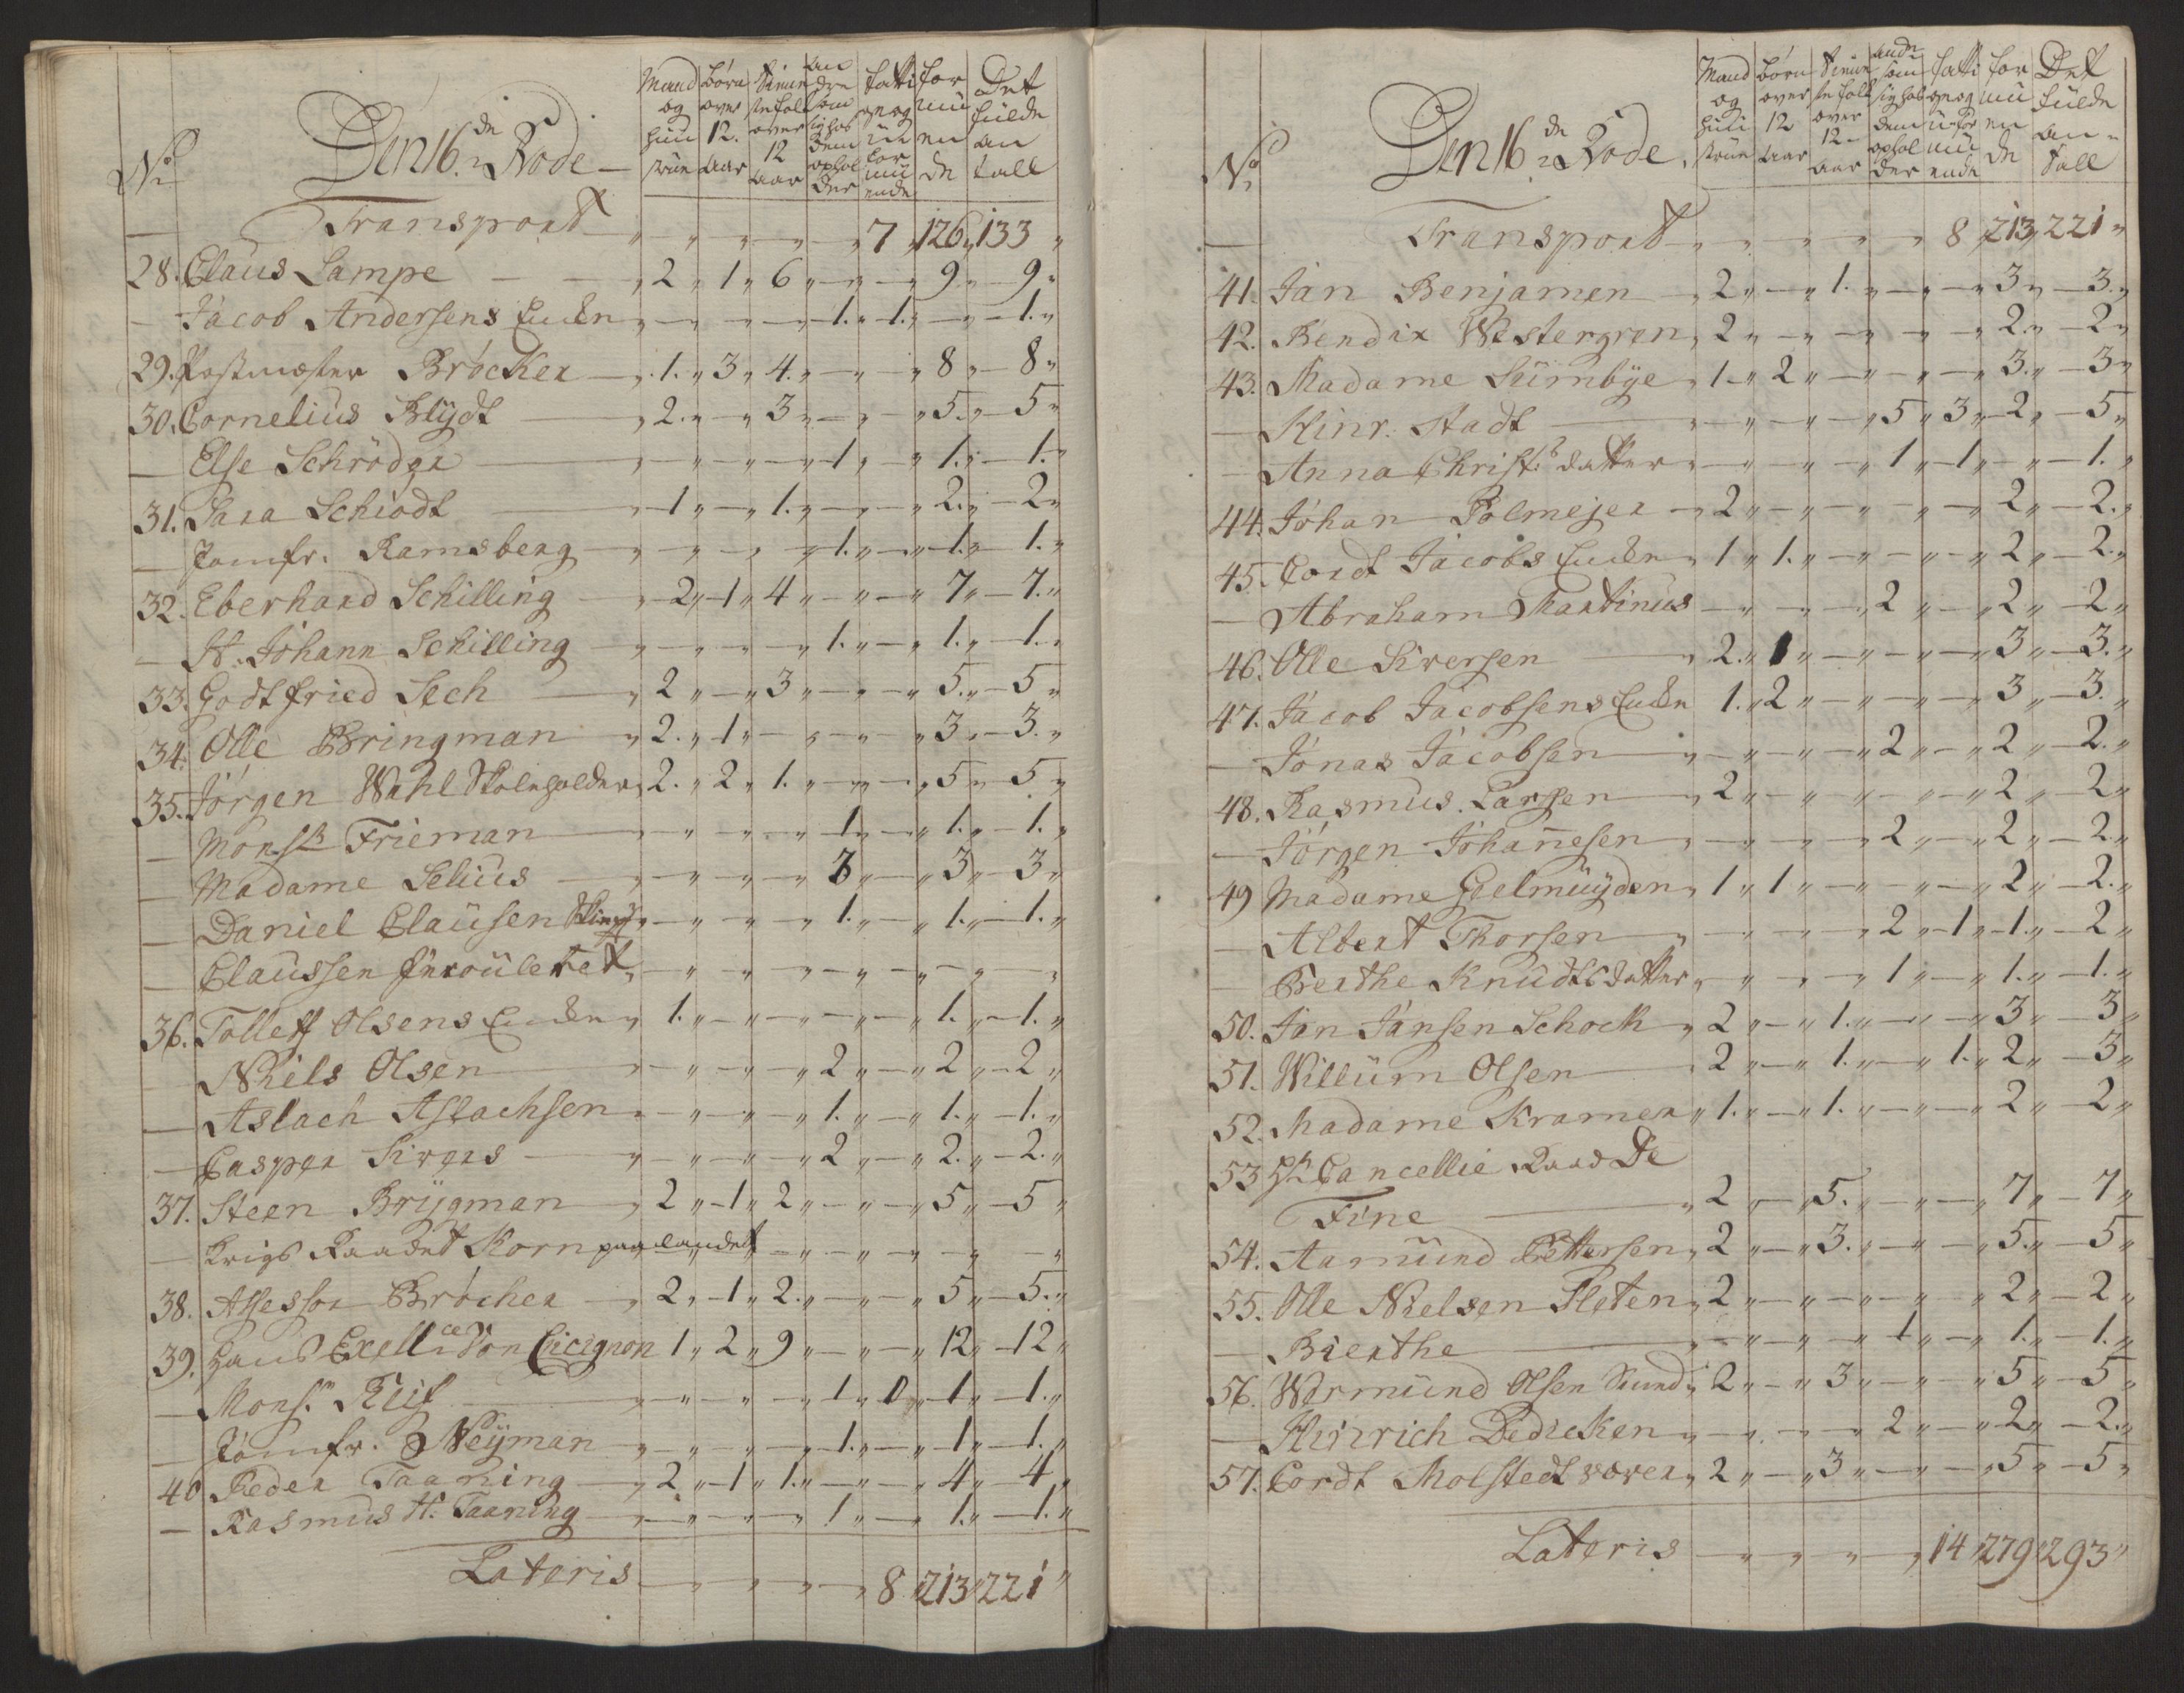 No Den 16de Rode Mand og hustrue børn over 12. aar tienneste folk over 12 aar andre som sig hos dem opholder fattige og uformuende formuende Det fulde antall
Transport 7 126 133
28. Claus Lampe 2 1 6 9 9
Jacob Andersens Encke 1. 1. 1.
29. Postmester Bröcker 1. 3 4. 8 8
30. Cornelius Blydt 2. 3 5. 5
Else Schröder 1 1. 1.
31. Sara Schiodt 1 1. 2. 2
Jomfr. Ramsberg 1. 1. 1.
32. Eberhard Schilling 2 1 4 7 7.
H. Johann Schilling 1. 1. 1.
33. Godtfried Sech 2 3 5. 5
34. Olle Bringman 2. 1 3 3.
35. Jörgen Wahl Skoleholder 2. 2 1. 5 5
Monsr Frieman 1 1. 1.
Madame Selius 3 3 3
Daniel Clausen 1. 1. 1.
Claussen
36. Tolleff Olsens Encke 1. 1. 1.
Niels Olsen 2 2 2
Aslach Aslachsen 1. 1. 1.
Casper Sivers 2 2. 2.
37. Steen Brygman 2 1 2 5 5
Krigs Raadet Korn paa landet
38. Assessor Bröcher 2 1 2. 5 5.
39. Hans Exellce Von Cicignon 1 2 9 12 12
Monsr. Reis 1 0 1 1.
Jomfr. Neyman 1. 1 1.
40 Peder Taaning 2 1 1. 4 4
Rasmus H. Taaning 1 1. 1.
Lateris 8 213 221
No Den 16de Rode Mand og hustrue børn over 12 aar tienneste folk over 12 aar andre som sig hos dem opholder fattige og uformuende formuende Det fulde an tall
Transport 8 213 221
41. Jan Benjamen 2 1. 3 3.
42. Bendix Westergren 2 2. 2
43. Madame Sumbye 1. 2 3. 3
Hinr. Stadt 5 3 2 5
Anna Christ: datter 1 1 1.
44. Johan Polmejer 2 2 2.
45. Cordt Jacobs Encke 1 1. 2 2.
Abraham Martinus 2 2 2
46. Olle Siversen 2. 1 3 3.
47. Jacob Jacobsens Encke 1. 2 3 3.
Jonas Jacobsen 2 2 2.
48. Rasmus Larsen 2 2 2
Jörgen Johannesen 2 2 2.
49 Madame Geelmuyden 1 1 2 2.
Albert Thorsen 2 1 1. 2
Berthe Knudtsdatter 1 1. 1.
50. Jan Jansen Schock 2 1. 3 3
51. Willum Olsen 2 1. 1. 2 3
52. Madame Kramer 1. 1. 2 2
53 Hr Cancellie Raad De
Fine 2 5. 7 7
54. Aamund Pettersen 2 3. 5. 5
55. Olle Nielsen Sleten 2 2 2
Bierthe 1 1. 1.
56. Wermund Olsen Sund 2 3 5 5
Hinrich Dedicken 2 2 2.
57. Cordt Molstedt væver 2 3 5 5
Lateris 14 279 293